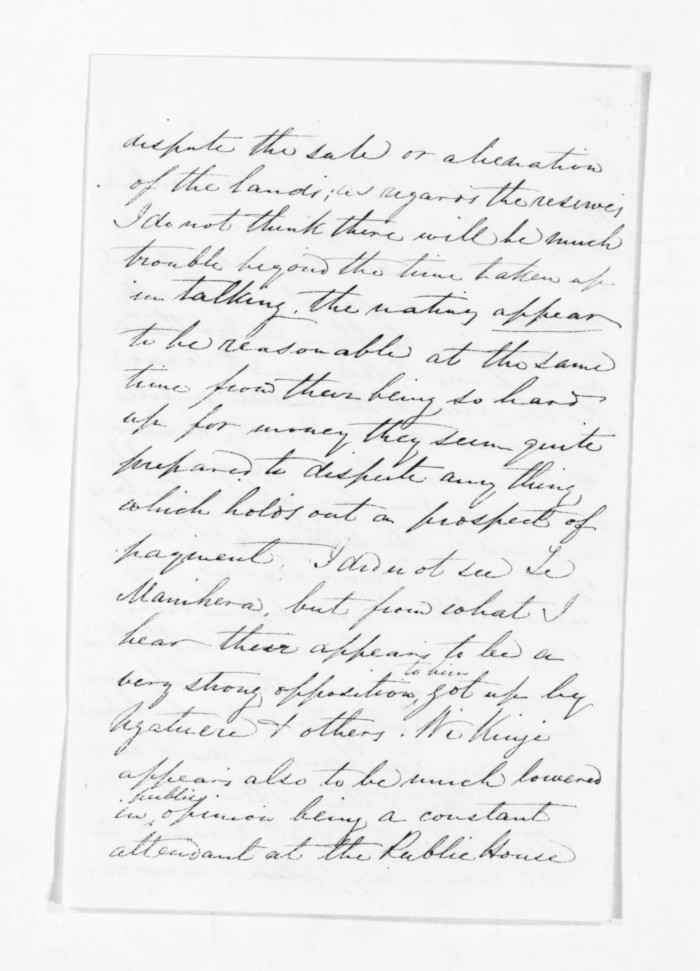 dispute the sale or alienation
of the lands; as regards the reserves
I do not think there will be much
trouble beyond the time taken up
in talking. The natives appear
to be reasonable at the same
time from their being so hard
up for money they seem quite
prepared to dispute any thing
which holds out a prospect of
payment. I did not see Te
Manihera, but from what I
hear there appears to be a
very strong opposition to him got up by
Ngatuere & others. Wi Kingi
appears also to be much lowered
in public opinion being a constant
attendant at the Public House